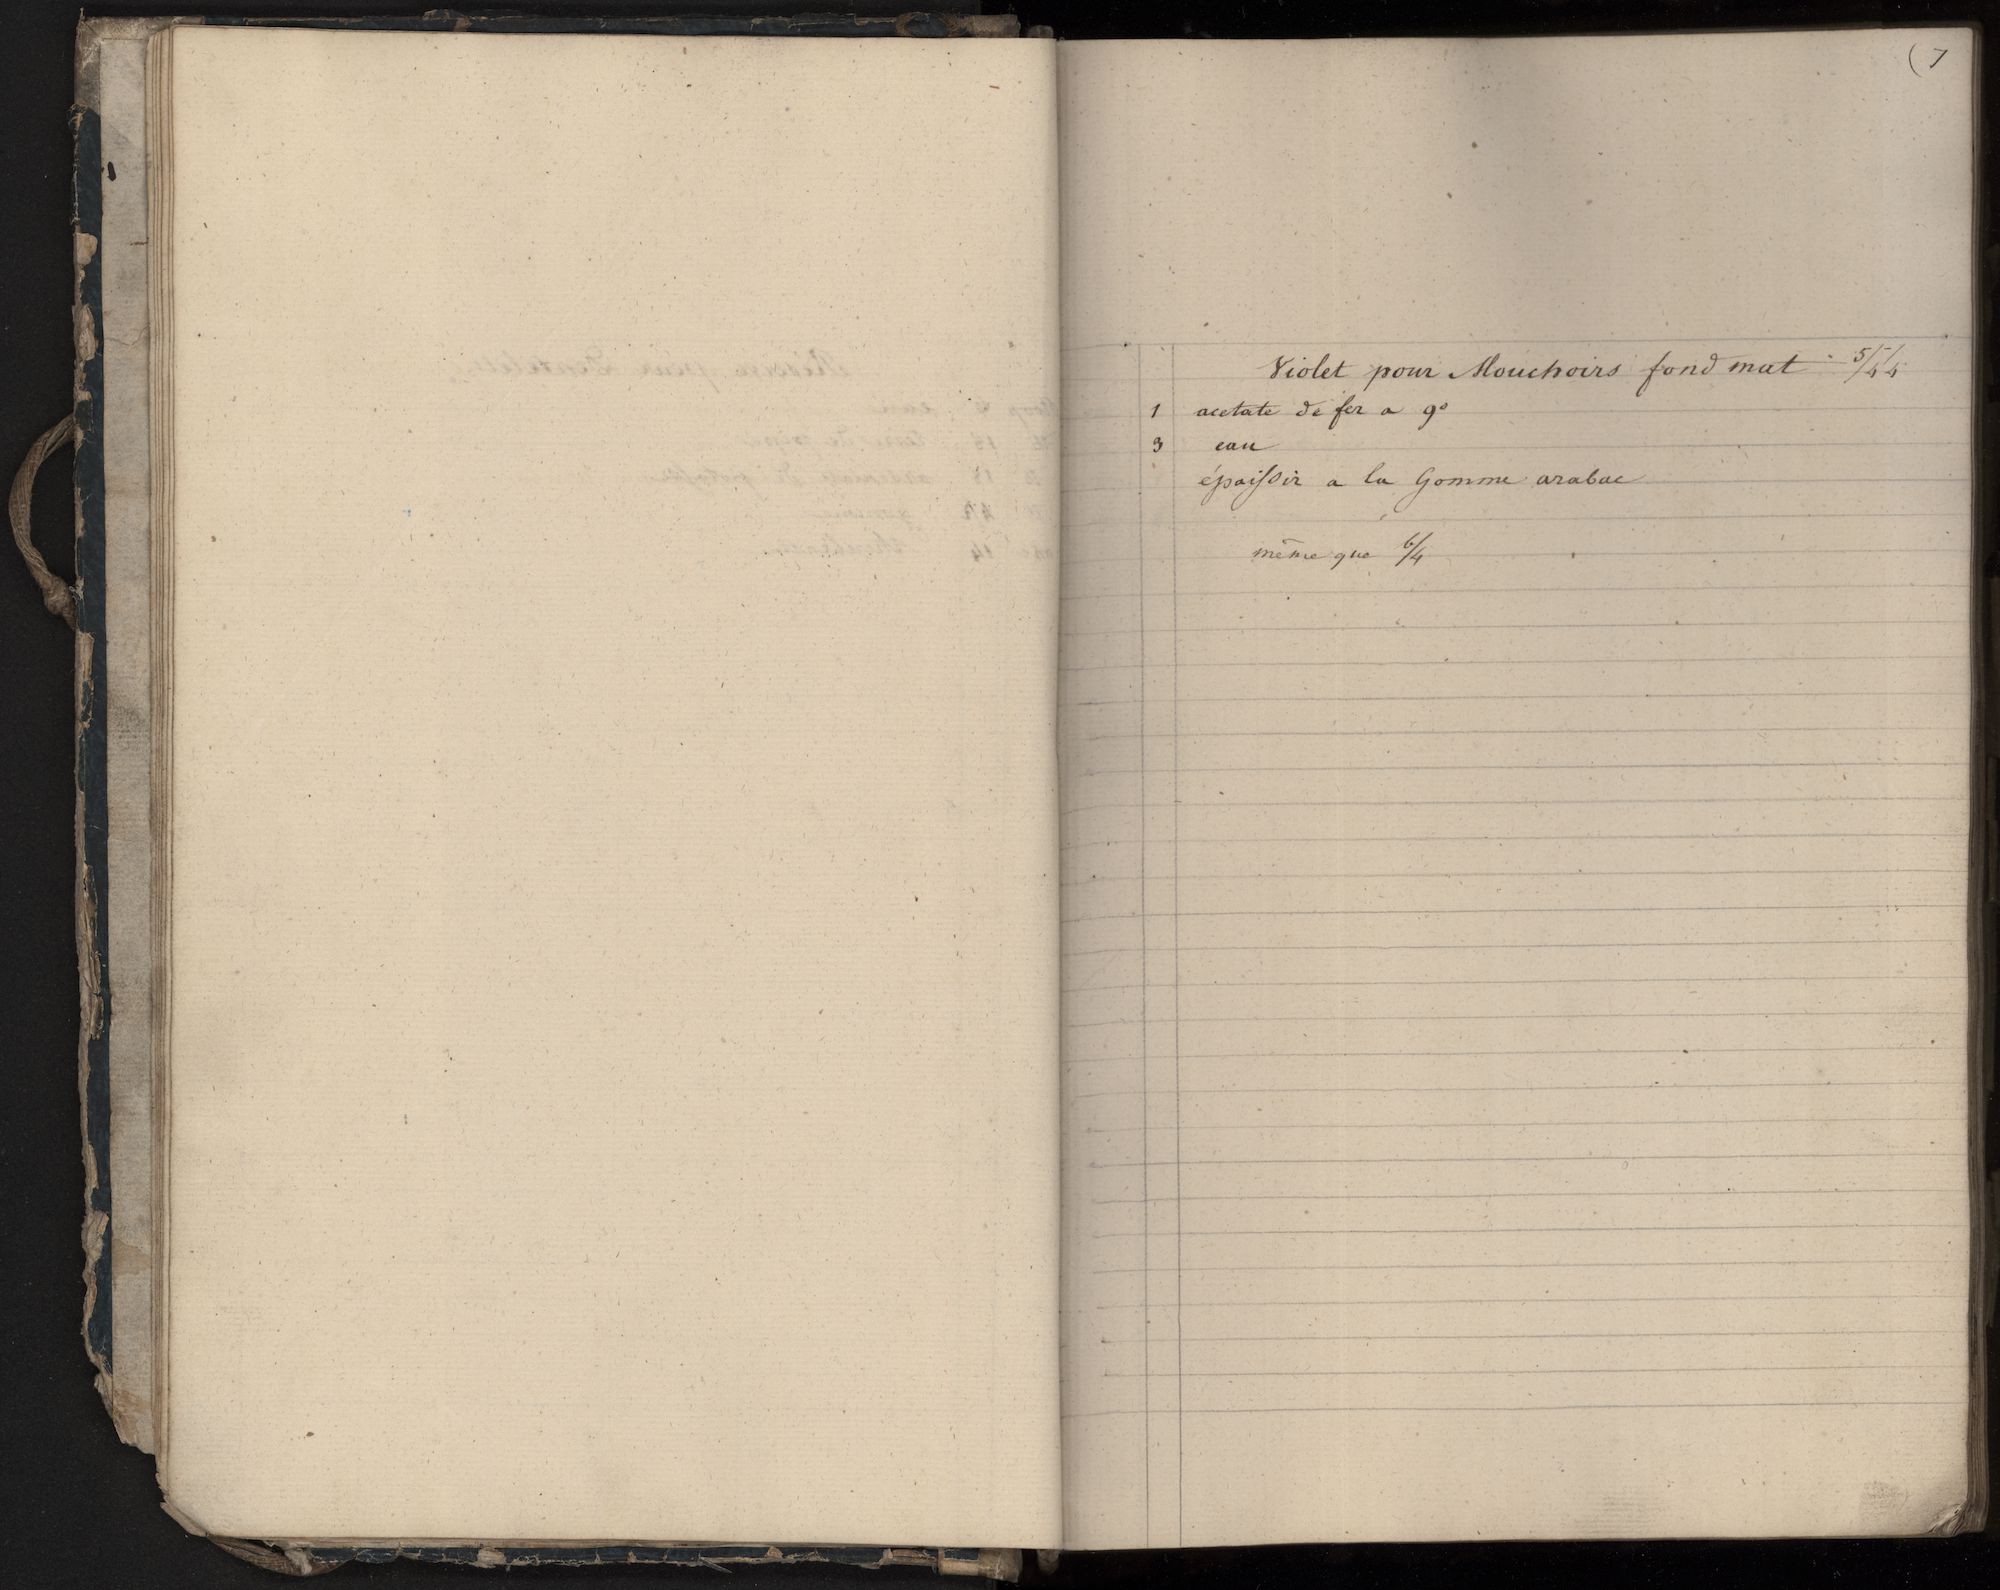 (7
Violet pour Mouchoirs fond mat 5/4
1 acetate de fer a 9°
3 eau
épaissir a la Gomme arabac
même que 6/4